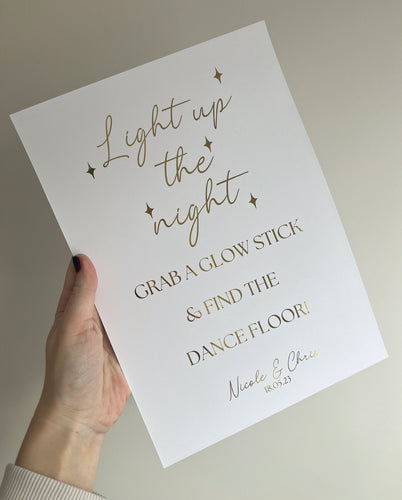 Light up
the
night
GRAB A GLOW STICK
& FIND THE
DANCE FLOOR!
Nicole & Chris
18.03.23